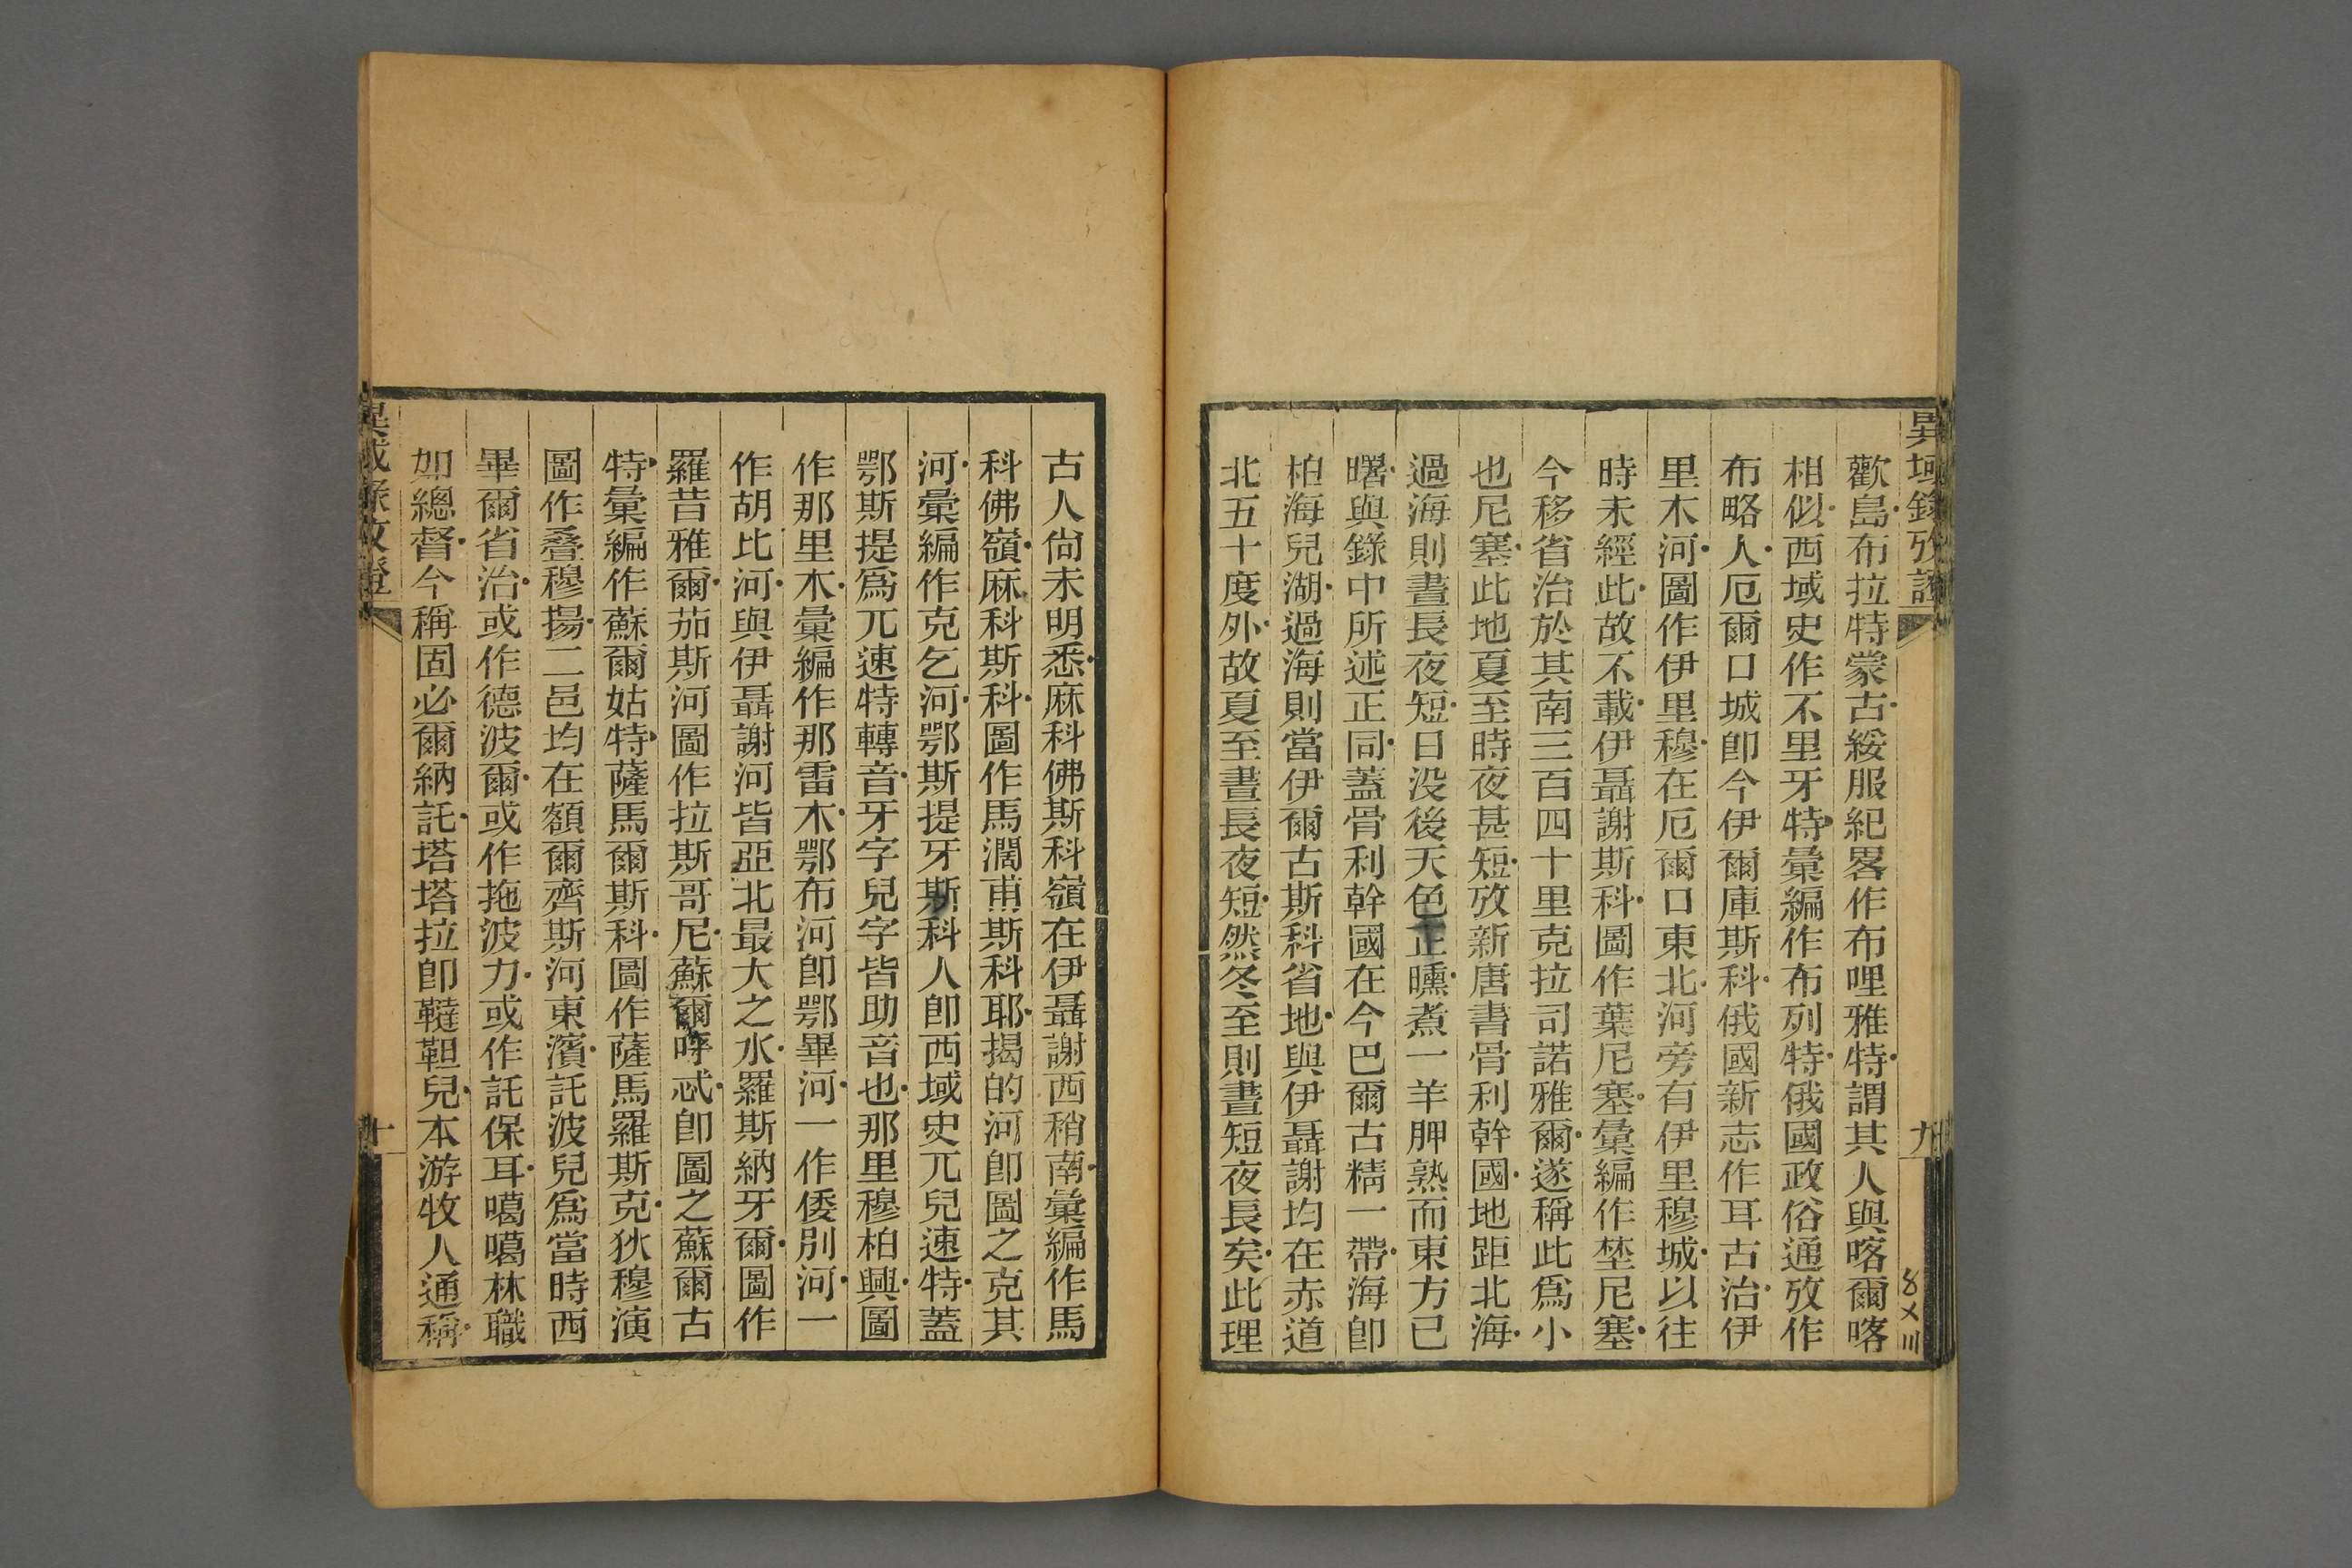 異域錄攷證
九
歡島布拉特蒙古綏服紀畧作布哩雅特謂其人與喀爾喀
相似西域史作不里牙特彙編作布列特俄國政俗通攷作
布略人厄爾口城卽今伊爾庫斯科俄國新志作耳古治伊
里木河圖作伊里穆在厄爾口東北河旁有伊里穆城以往
時未經此故不載伊聶謝斯科圖作葉尼塞彙編作埜尼塞
今移省治於其南三百四十里克拉司諾雅爾遂稱此爲小
也尼塞此地夏至時夜甚短攷新唐書骨利幹國地距北海
過海則晝長夜短日没後天色正曛煮一羊胛熟而東方已
曙與錄中所述正同蓋骨利幹國在今巴爾古精一帶海卽
柏海兒湖過海則當伊爾古斯科省地與伊聶謝均在赤道
北五十度外故夏至晝長夜短然冬至則晝短夜長矣此理
古人尙未明悉麻科佛斯科嶺在伊聶謝西稍南彙編作馬
科佛嶺麻科斯科圖作馬濶甫斯科耶揭的河卽圖之克其
河彙編作克乞河鄂斯提牙斯科人卽西域史兀兒速特蓋
鄂斯提爲兀速特轉音牙字兒字皆助音也那里穆柏興圖
作那里木彙編作那雷木鄂布河卽鄂畢河一作倭別河一
作胡比河與伊聶謝河皆亞北最大之水羅斯納牙爾圖作
羅昔雅爾茄斯河圖作拉斯哥尼蘇爾呼忒卽圖之蘇爾古
特彙編作蘇爾姑特薩馬爾斯科圖作薩馬羅斯克狄穆演
圖作叠穆揚二邑均在額爾齊斯河東濱託波兒爲當時西
畢爾省治或作德波爾或作拖波力或作託保耳噶噶林職
如總督今稱固必爾納託塔塔拉卽韃靼兒本游牧人通稱
異域錄攷證
十